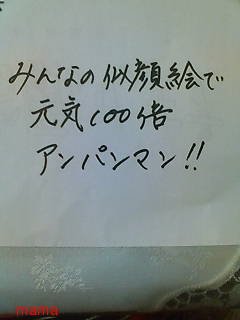 みんなの似顔絵で
元気100倍
アンパンマン!!
mama